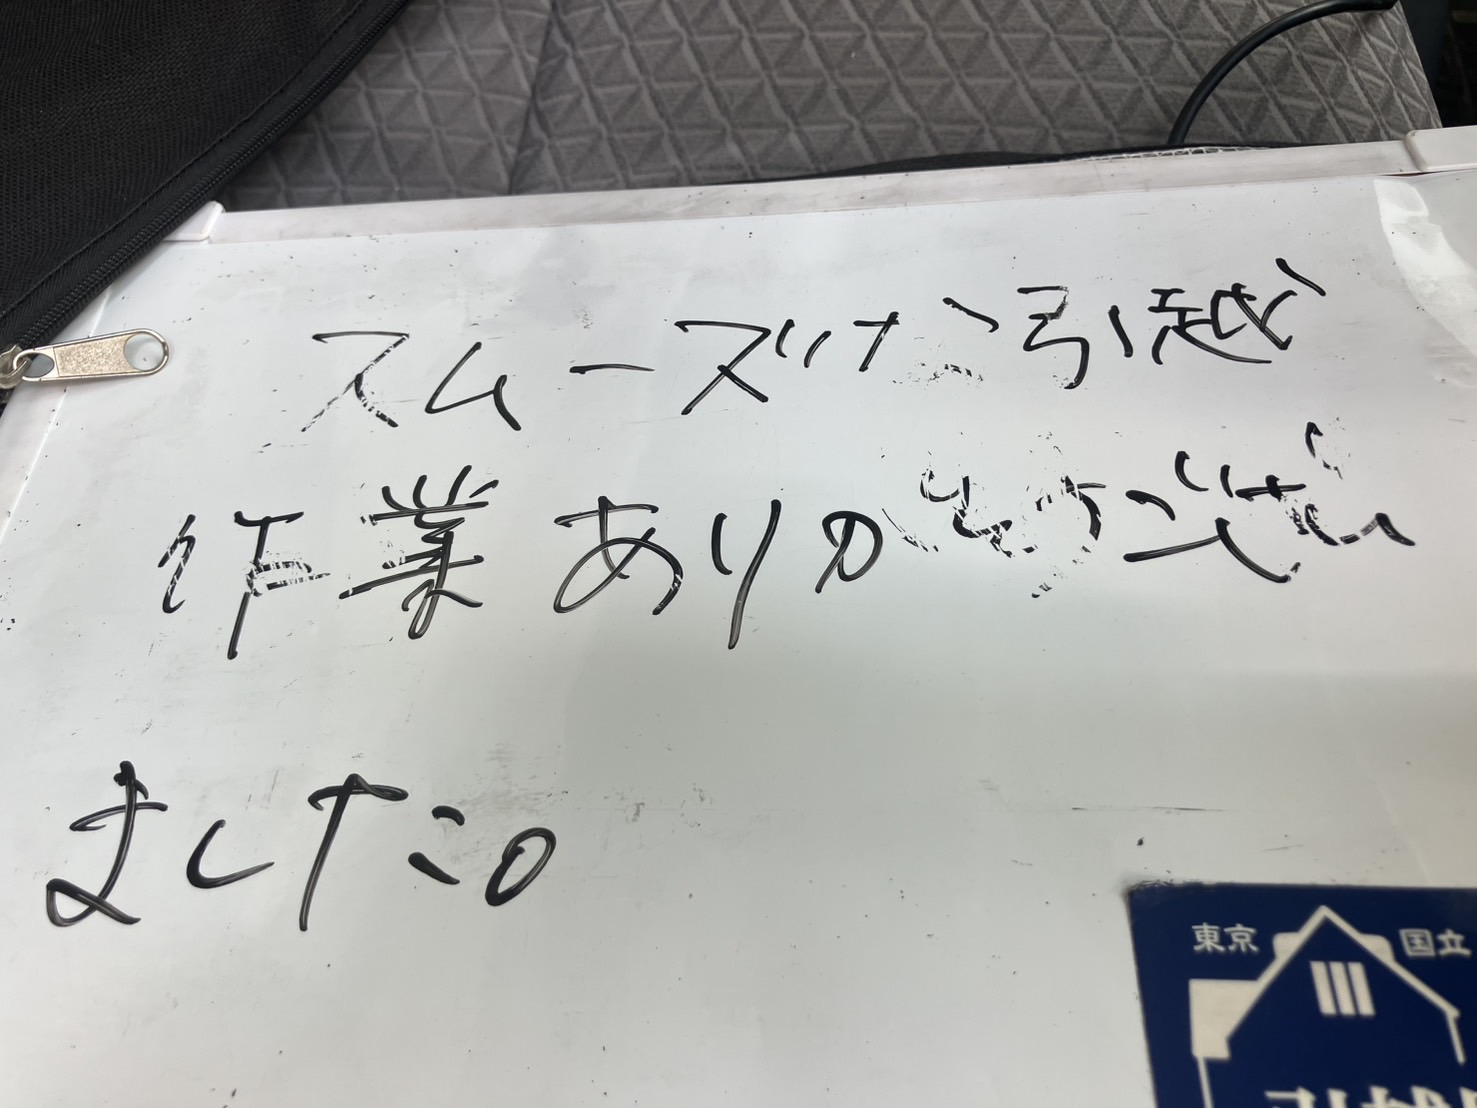 スムーズな引越
作業ありがとうござい
ました。
東京 国立